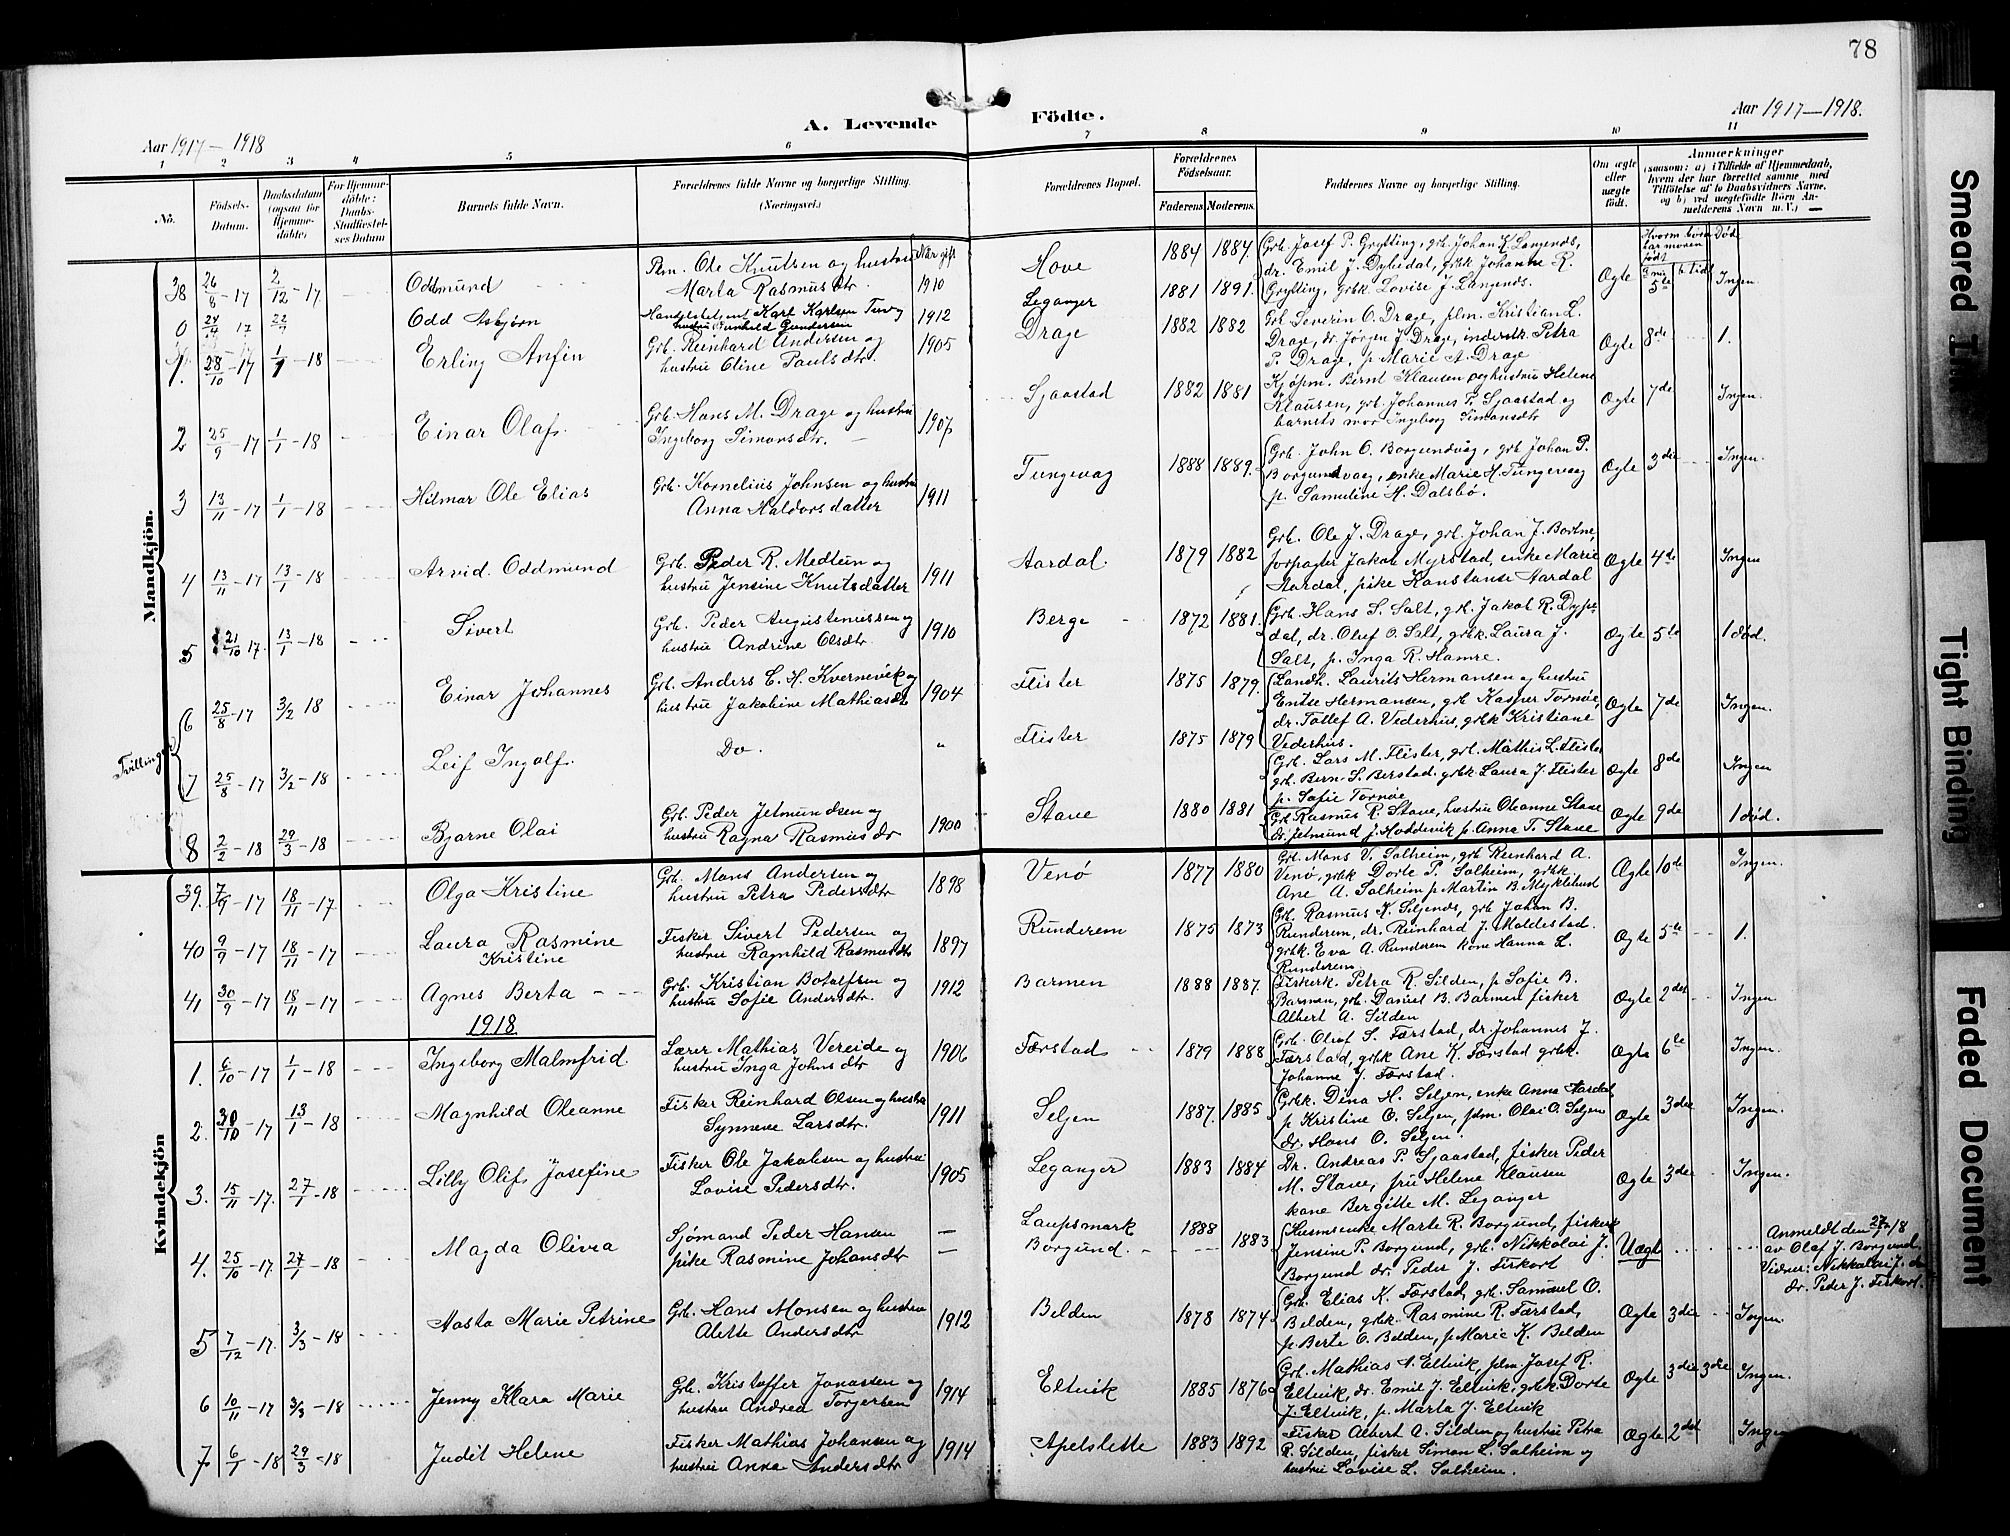 78
Aar 1917–1918
A. Levende
Födte.
Aar 1917–1918.
1 2 3 4 5 6 7 8 9 10 11
No.
Födsels-
Datum.
Daabsdatum
(ogsaa for
Hjemme-
döbte)
For Hjemme-
döbte:
Daabs-
Stadfæstel-
ses Datum
Barnets fulde Navn.
Forældrenes fulde Navne og borgerlige Stilling.
(Næringsvei.)
Forældrenes Bopæl.
Forældrenes
Födselsaar.
Faderens.
Moderens.
Faddernes Navne og borgerlige Stilling.
Om ægte
eller
uægte
födt.
Anmærkninger
(saasom: a) i Tilfælde af Hjemmedaab,
hvem der har forrettet samme, med
Tilföielse af to Daabsvidners Navne,
og b) ved uægtefödte Börn An-
melderens Navn m. V.)
Mandkjön.
Naar gift
38 26/8-17 2/12-17 Oddmund
Ole Knutsen og hustru
Marta Rasmusdtr. 1910
Hove 1884 1884
Grb. Josef P. Grytting, grb. Johan K. Langends,
dr. Emil J. Dybedal, grbk Johanne R.
Grytting, grbk. Lovise J. Langends.
Ægte 5te Ingen
0 Odd Asbjørn
1912
Leganger 1881 1891
1. 28/10-17 1/1-18 Erling Anfin
Grb. Reinhard Andersen og
hustru Eline Paulsdtr. 1905
Drage 1882 1882
Grb. Severin O. Drage, plm. Kristian L.
Drage, dr. Jørgen J. Drage, inderstk. Petra
P. Drage, p. Marie A. Drage
Ægte 8de 1.
2 25/9-17 1/1-18 Einar Olaf
Grb. Hans M. Drage og hustru
Ingeborg Simonsdtr. 1907
Sjaastad 1882 1881
Kjøpm. Bernt Klausen og hustru Helene
Klausen, grb. Johannes P. Sjaastad og
barnets mor Ingeborg Simonsdtr
Ægte 7de Ingen
3 13/11-17 1/1-18 Hilmar Ole Elias
Grb. Kornelius Johnsen og hustru
Anna Haldorsdatter 1911
Tungevag 1888 1889.
Grb. John O. Borgundvåg, grb Johan P.
Borgundvaag, enke Marie H. Tungevaag
p. Samuline H. Dalsbö.
Ægte 3die Ingen.
4 13/11-17 13/1-18 Arvid Oddmund
Grb. Peder R. Medtun og
hustru Jensine Knutsdatter 1911
Aardal 1879 1882
Grb. Ole J. Drage, grb. Johan J. Bortne,
forpagter Jakob Myrstad, enke Marie
Aardal, pike Konstanse Aardal
Ægte 4de Ingen
5 21/10 17. 13/1-18 Sivert
Grb. Peder Augustinussen og
hustru Andrine Olsdtr. 1910
Berge 1872 1881.
Grb. Hans S. Salt, grb. Jakob R. Dype-
dal, dr. Oluf O. Salt, grbk. Laura J.
Salt, p. Inga R. Hamre.
Ægte 5te 1 död.
Tvillinger
6 25/8-17 3/2 18 Einar Johannes
Grb. Anders E. H. Kvernevik og
hustru Jakobine Mathiasdtr 1904
Flister 1875 1879.
Landh. Laurits Hermansen og hustru
Entse Hermansen, grb. Kasper Tornöe,
dr. Tollef A. Vederhus, grbk Kristiane
Vederhus.
Ægte 7de Ingen.
7 25/8-17 3/2-18 Leif Ingolf.
Do. "
Flister 1875 1879
Grb. Lars M. Flister, grb. Mathis L. Flister
grb. Bern. S. Berstad. grbk Laura J. Flister
p. Sofie Tornöe
Ægte 8de Ingen
8 2/2-18 29/3-18 Bjarne Olai
Grb. Peder Jetmundsen og
hustru Ragna Rasmusdr 1900
Stave 1880 1881
Grb Rasmus R. Stave, hustru Oleanne Stave
dr. Jetmund J. Hoddevik p. Anna T. Stave
Ægte 9de 1 död.
Kvindekjön
39. 7/9-17 18/11-17 Olga Kristine
Grb. Mons Andersen og
hustru Petra Pedersdtr 1898
Venö 1877 1880
Grb. Mons V. Solheim, grb Reinhard A.
Venö, grbk Dorte P. Solheim, grbk.
Ane A. Solheim p Martin B. Myklebust
Ægte 10de Ingen.
40 9/9-17 18/11-17 Laura Rasmine
Kristine
Fisker Sivert Pedersen og
hustru Ragnhild Rasmusdtr 1897
Runderem 1875 1873
Grb. Rasmus K. Seljends, grb Johan B.
Runderem, dr. Reinhard J. Moldestad.
grbk. Eva A. Runderem kone Hanna L.
Runderem
Ægte 5te 1.
41 30/9-17 18/11-17 Agnes Berta
Grb. Kristian Botolfsen og
hustru Sofie Andersdtr. 1912
Barmen 1888 1887.
Fiskerk. Petra R. Silden, p Sofie B.
Barmen, grb. Daniel B. Barmen fisker
Albert A. Silden
Ægte 2det Ingen
1918
1. 6/10-17 1/1-18 Ingeborg Malmfrid.
Lærer Mathias Vereide og
hustru Inga Johnsdtr 1906
Færstad 1879 1888
Grb. Oluf S. Færstad, dr. Johannes J.
Færstad, grbk Ane K. Færstad grbk.
Johanne J. Færstad.
Ægte 6te Ingen.
2. 30/10-17 13/1-18 Magnhild Oleanne
Fisker Reinhard Olsen og hustru
Synneve Larsdtr. 1911
Seljen 1887. 1885
Grbk. Dina H. Seljen, enke Anna Aardal
p Kristine O. Seljen, plm. Olai O. Seljen
dr. Hans O. Seljen.
Ægte 3die Ingen.
3. 15/11-17. 27/1-18 Lilly Olif Josefine
Fisker Ole Jakobsen og hustru
Lovise Pedersdtr. 1905
Leganger 1883 1884
Dr. Andreas P. Sjaastad, fisker Peder
M. Stave, fru Helene Klausen
kone Bergitte M. Leganger
Ægte 3die Ingen.
4. 25/10-17 27/1-18 Magda Olivia
Sjømand Peder Hansen
pike Rasmine Johansdtr
Laupsmark 1888
Borgund. 1883
Husmenke Marte R. Borgund, fisker
Jensine P. Borgund, grb. Nikkolai J.
Borgund dr. Peder J. Fiskort
Uægt
Anmeldt den 27/1 18
av Olaf J. Borgund
Vidner: Nikkolai J.
dr. Peder J. Fiskort.
5 7/12-17. 3/3-18 Aasta Marie Petrine
Grb. Hans Monsen og hustru
Alette Andersdtr 1912
Belden 1878 1874
Grb. Elias K. Færstad, grb. Samuel O.
Belden, grbk. Rasmine R. Færstad,
p. Berte O. Belden, p Marie K. Belden
Ægte 3die Ingen.
6 10/11-17 3/3-18 Jenny Klara Marie
Grb. Kristoffer Jonassen og
hustru Andrea Torgersen 1914
Eltvik 1885 1876
Grb. Mathias A. Eltvik, plm. Josef R.
Eltvik, dr. Emil J. Eltvik, grbk. Dorte
J. Eltvik, p. Marta J. Eltvik
Ægte 3die 3die Ingen.
7 6/1-18 29/3-18 Judit Helene
Fisker Mathias Johansen og
hustru Anna Andersdtr 1914
Apelslette 1883 1892
Fisker Albert A. Silden og hustru Petra
R. Silden, fisker Simon L. Solheim og
hustru Lovise L. Solheim.
Ægte 2det Ingen
Smeared Ink
Tight Binding
Faded Document